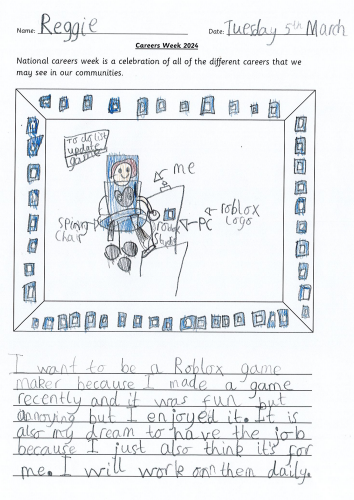 Name: Reggie Date: Tuesday 5th March
Careers Week 2024
National careers week is a celebration of all of the different careers that we
may see in our communities.
To do list
update
game
me
Spining
Chair
roblox
PC
roblox
logo
I want to be a Roblox game
maker because I made a game
recently and it was fun but
annoying but I enjoyed it. It is
also my dream to have the job
because I just also think it's for
me. I will work on them daily.